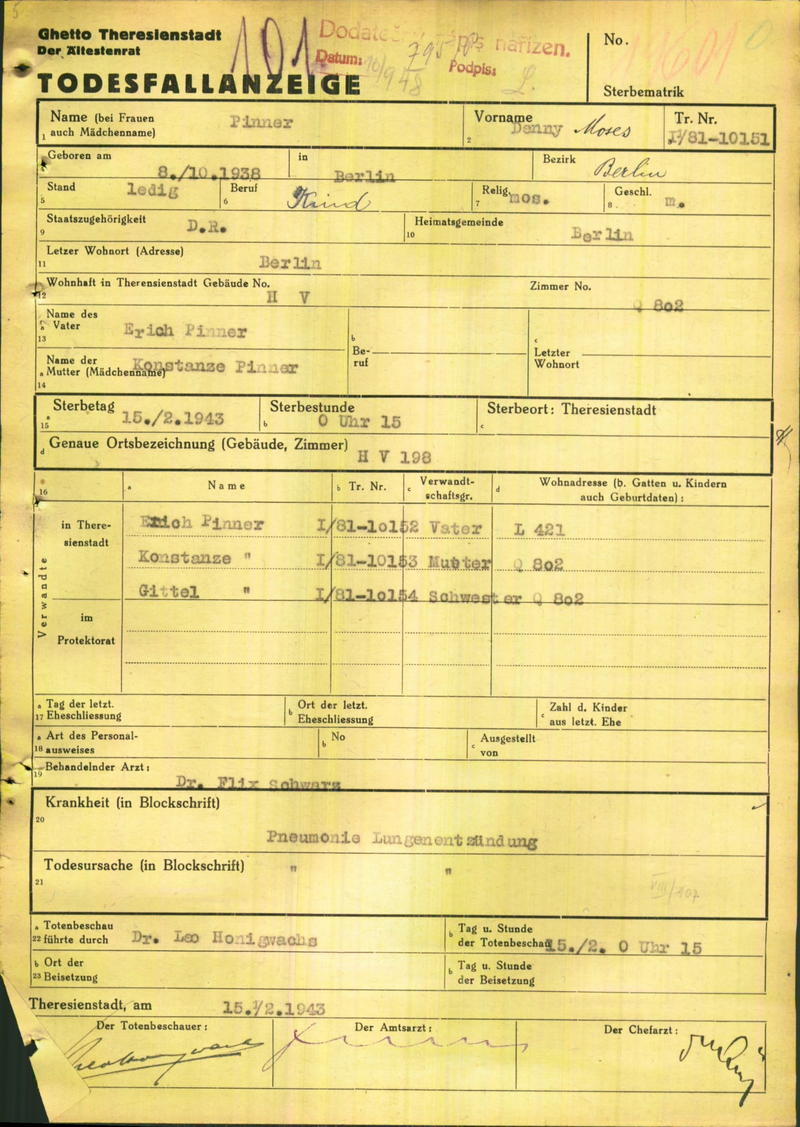 Ghetto Theresienstadt
Der Ältestenrat
101
Datum:
795
nařízen.
Podpis:
No.
Sterbematrik
TODESFALLANZEIGE
Name (bei Frauen auch Mädchenname) Pinner
1
Vorname Denny Moses
2
Tr. Nr. I/81-10151
Geboren am 8./10.1938
in Berlin
Bezirk Berlin
Stand ledig
5
Beruf Kind
6
Relig. mos.
7
Geschl. m.
8.
Staatszugehörigkeit D.R.
9
Heimatsgemeinde Berlin
10
Letzer Wohnort (Adresse) Berlin
11
Wohnhaft in Theresienstadt Gebäude No. H V
12
Zimmer No. Q 802
Name des Vater Erich Pinner
a
13
b Beruf
c Letzter Wohnort
Name der Mutter (Mädchenname) Konstanze Pinner
a
14
Sterbetag 15./2.1943
a
15
Sterbestunde 0 Uhr 15
b
Sterbeort: Theresienstadt
c
d Genaue Ortsbezeichnung (Gebäude, Zimmer) H V 198
16
a Name
b Tr. Nr.
c Verwandt-schaftsgr.
d Wohnadresse (b. Gatten u. Kindern auch Geburtdaten):
Verwandte
in There-sienstadt
Erich Pinner I/81-10152 Vater L 421
Konstanze " I/81-10153 Mutter Q 802
Gittel " I/81-10154 Schwester Q 802
im Protektorat
a Tag der letzt.
17 Eheschliessung
b Ort der letzt. Eheschliessung
c Zahl d. Kinder aus letzt. Ehe
a Art des Personal-
18 ausweises
b No
c Ausgestellt von
Behandelnder Arzt: Dr. Flix Schwarz
19
Krankheit (in Blockschrift)
20
Pneumonie Lungenentzündung
Todesursache (in Blockschrift) " "
21
VIII/107
a Totenbeschau
22 führte durch Dr. Leo Honigwachs
b Tag u. Stunde der Totenbeschau 15./2. 0 Uhr 15
b Ort der
23 Beisetzung
b Tag u. Stunde der Beisetzung
Theresienstadt, am 15./2.1943
Der Totenbeschauer:
Der Amtsarzt:
Der Chefarzt: